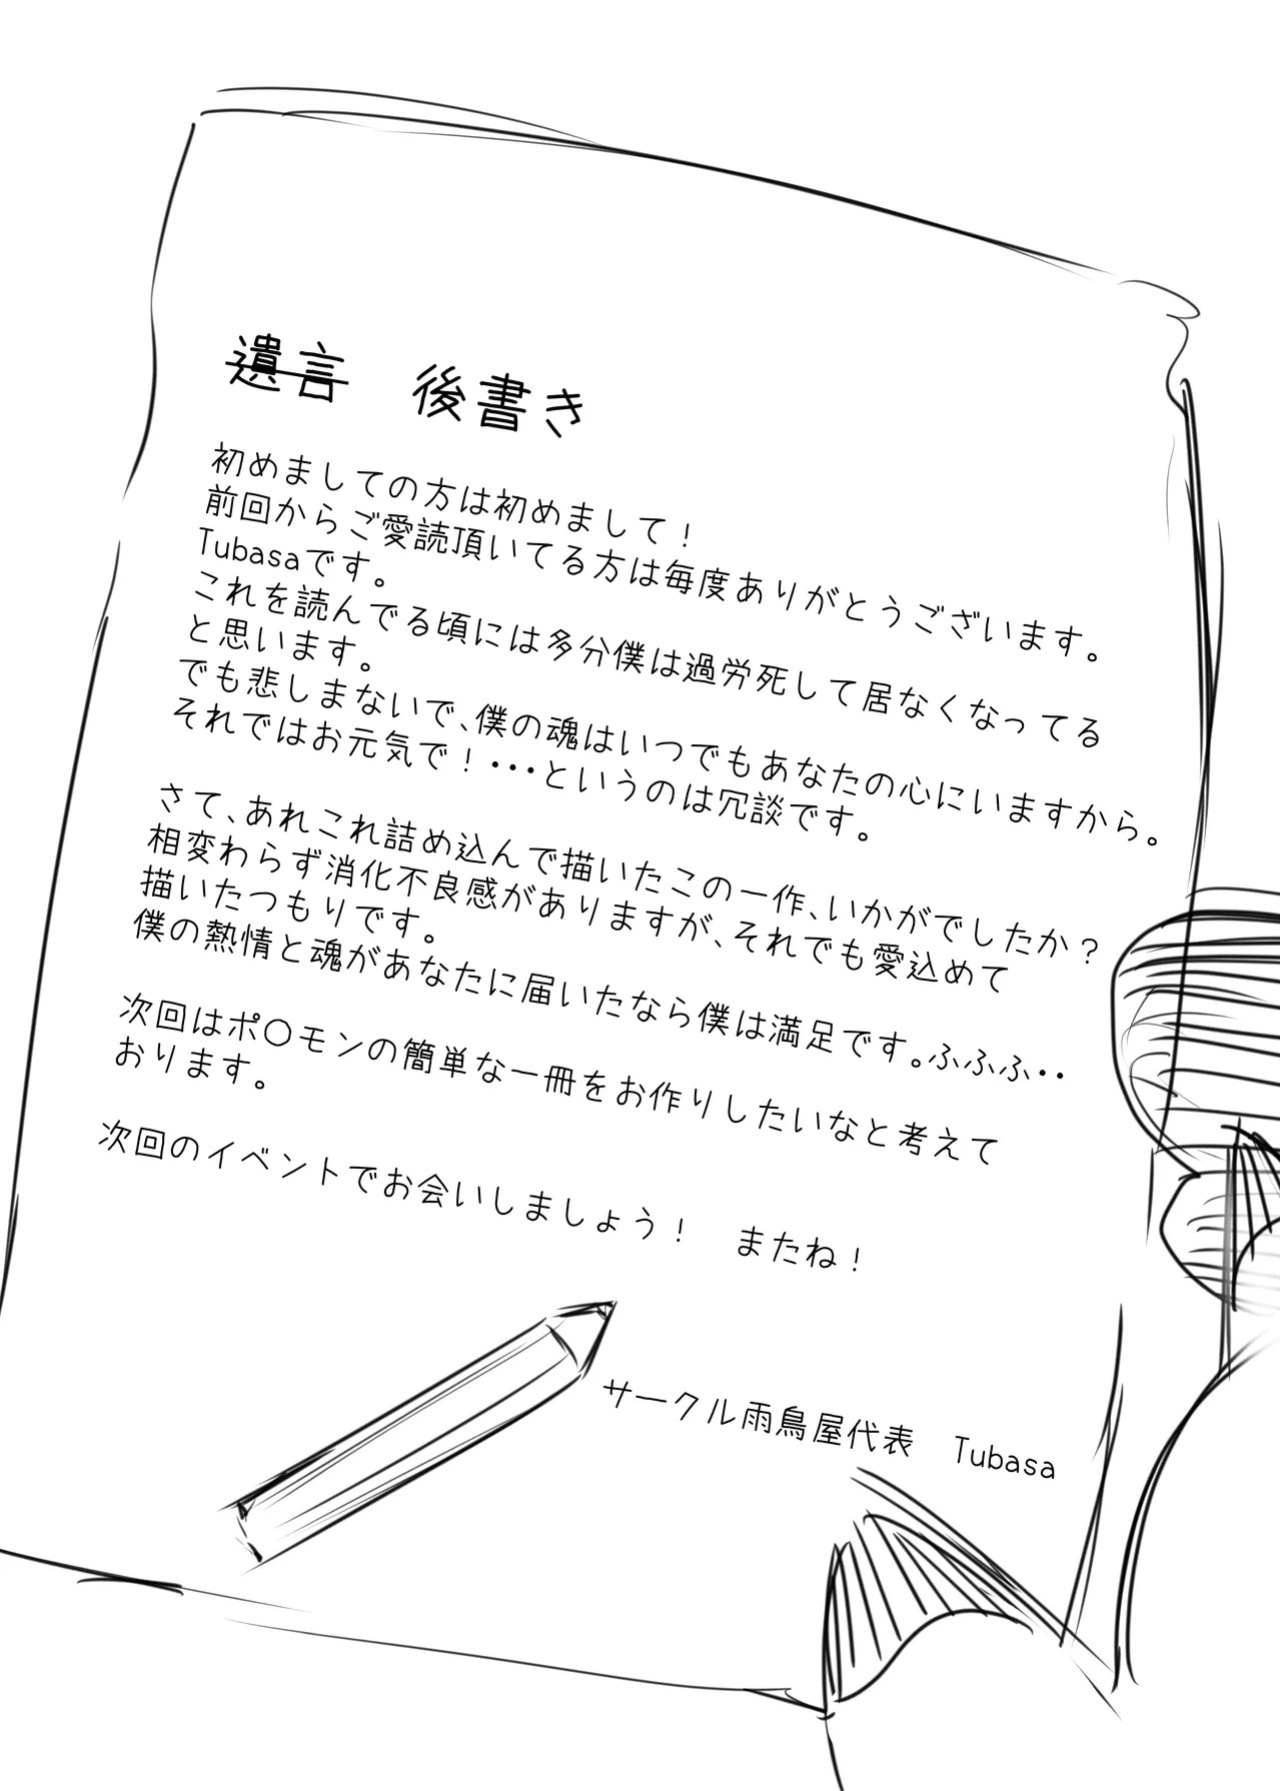 遺言　後書き
初めましての方は初めまして！
前回からご愛読頂いてる方は毎度ありがとうございます。
Tubasaです。
これを読んでる頃には多分僕は過労死して居なくなってる
と思います。
でも悲しまないで、僕の魂はいつでもあなたの心にいますから。
それではお元気で！・・・というのは冗談です。
さて、あれこれ詰め込んで描いたこの一作、いかがでしたか？
相変わらず消化不良感がありますが、それでも愛込めて
描いたつもりです。
僕の熱情と魂があなたに届いたなら僕は満足です。ふふふ・・
次回はポ〇モンの簡単な一冊をお作りしたいなと考えて
おります。
次回のイベントでお会いしましょう！　またね！
サークル雨鳥屋代表　Tubasa